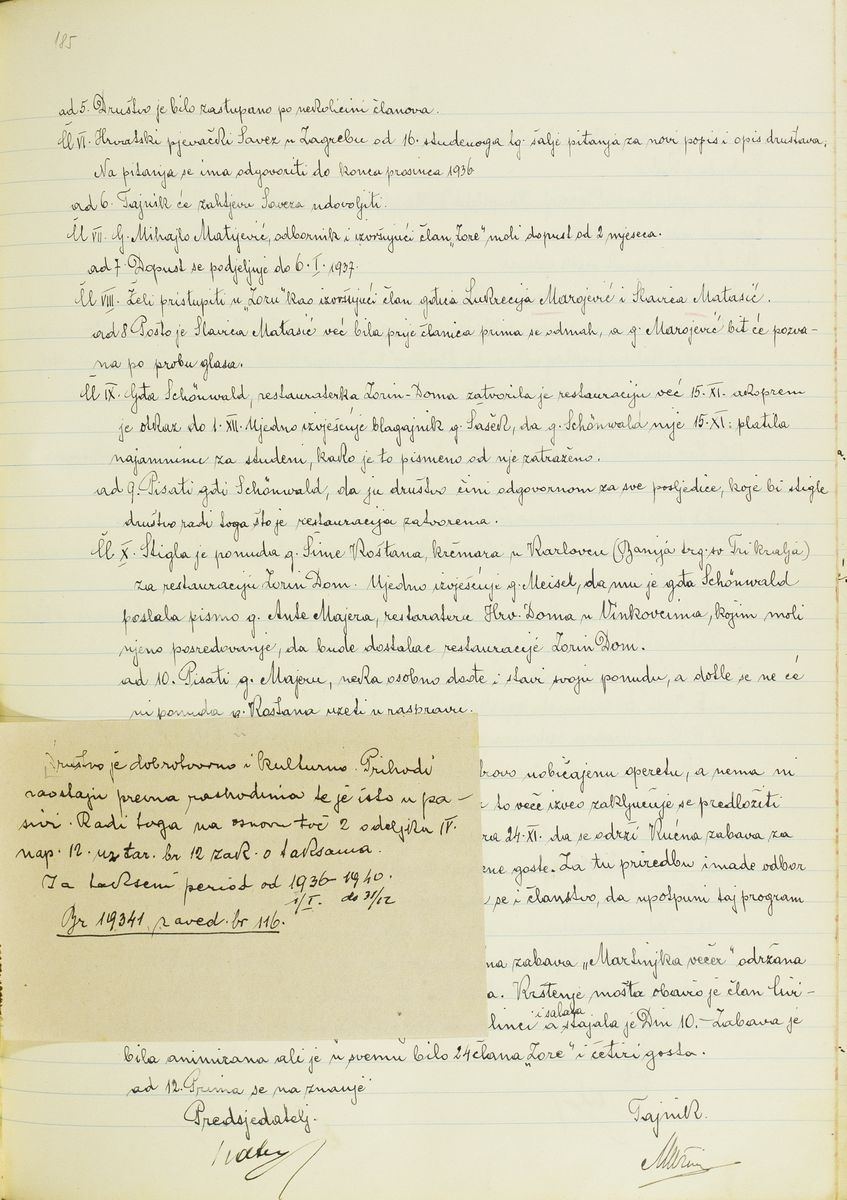 185
ad 5. Društvo je bilo zastupano po nekolicini članova.
Čl VI. Hrvatski pjevački Savez u Zagrebu od 16. studenoga tg. šalje pitanja za novi popis i opis društava,
Na pitanja se ima odgovoriti do konca prosinca 1936
ad 6. Tajnik će zahtjevu Saveza udovoljiti.
Čl VII. G. Mihajlo Matijević, odbornik i izvršujući član „Zore" moli dopust od 2 mjeseca.
ad 7. Dopust se podjeljuje do 6. I. 1937.
Čl VIII. Želi pristupiti u „Zoru" kao izvršujući član gđica Lukrecija Marojević i Slavica Matasić.
ad 8 Pošto je Slavica Matasić već bila prije članica prima se odmah, a g. Marojević bit će pozva-
na po probu glasa.
Čl IX. Gđa Schönwald, restauraterka Zorin-Doma zatvorila je restauraciju već 15. XI. akoprem
je otkaz do 1. XII. Ujedno izvješćuje blagajnik g. Šašek, da g. Schönwald nije 15. XI. platila
najamninu za studeni, kako je to pismeno od nje zatraženo.
ad 9. Pisati gđi Schönwald, da ju društvo čini odgovornom za sve posljedice, koje bi stigle
društvo radi toga što je restauracija zatvorena.
Čl X. Stigla je ponuda g. Šime Koštana, krčmara u Karlovcu (Banija trg. sv Tri kralja)
za restauraciju Zorin Dom. Ujedno izvješćuje g. Meisel, da mu je gđa Schönwald
poslala pismo g. Ante Majera, restaratera Hrv. Doma u Vinkovcima, kojim moli
njeno posredovanje, da bude dostalac restauracije Zorin Dom.
ad 10. Pisati g. Majeru, neka osobno dođe i stavi svoju ponudu, a dotle se ne će
ni ponuda g. Koštana uzeti u raspravu.
Društvo je dobrotvorno i kulturno. Prihodi
zaostaju prema rashodima te je isto u pa-
sivi. Radi toga na osnovu toč 2 odeljka IV.
nap. 12. uz tar. br 12 zak. o taksama.
Za takseni period od 1936 – 1940.
1/I. do 31/12
Br 19341, zaved. br 116.
uobičajenu operetu, a nema ni
to veće izveo zaključuje se predložiti
24. XI. da se održi Kućna zabava za
goste. Za tu priredbu imade odbor
se i članstvo, da upotpuni taj program
zabava „Martinjska večer" održana
Krštenje mošta obavio je član
i salata
a stajala je Din 10.– Zabava je
bila animirana ali je u svemu bilo 24 člana „Zore" i četiri gosta.
ad 12. Prima se na znanje
Predsjedatelj. Tajnik.